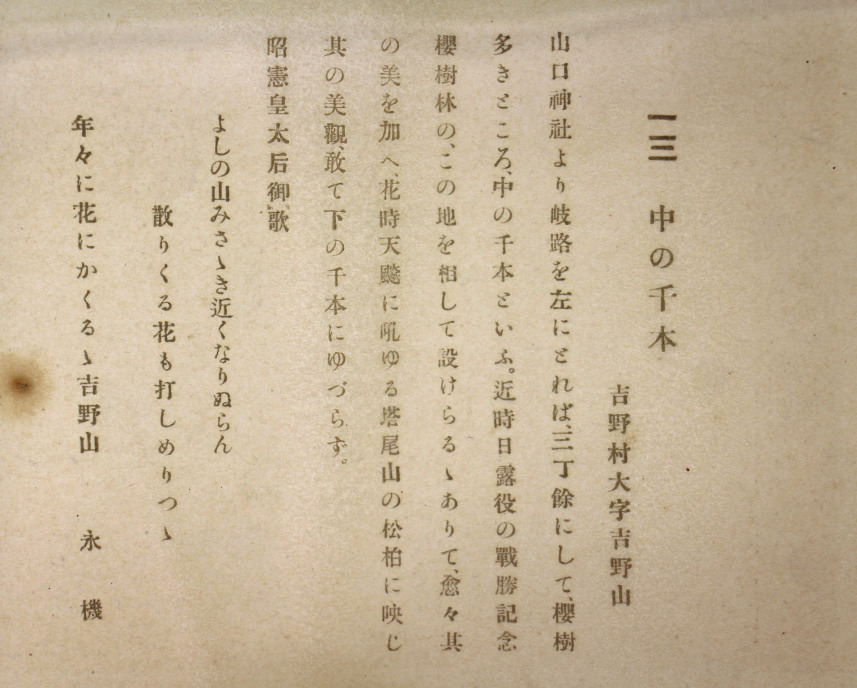 一三　中の千本
吉野村大字吉野山
山口神社より岐路を左にとれば、三丁餘にして、櫻樹
多きところ、中の千本といふ。近時日露役の戰勝記念
櫻樹林の、この地を相して設けらるゝありて、愈々其
の美を加へ、花時天飈に吼ゆる塔尾山の松柏に映じ
其の美觀、敢て下の千本にゆづらず。
昭憲皇太后御歌
よしの山みさゝき近くなりぬらん
散りくる花も打しめりつゝ
年々に花にかくるゝ吉野山　永機